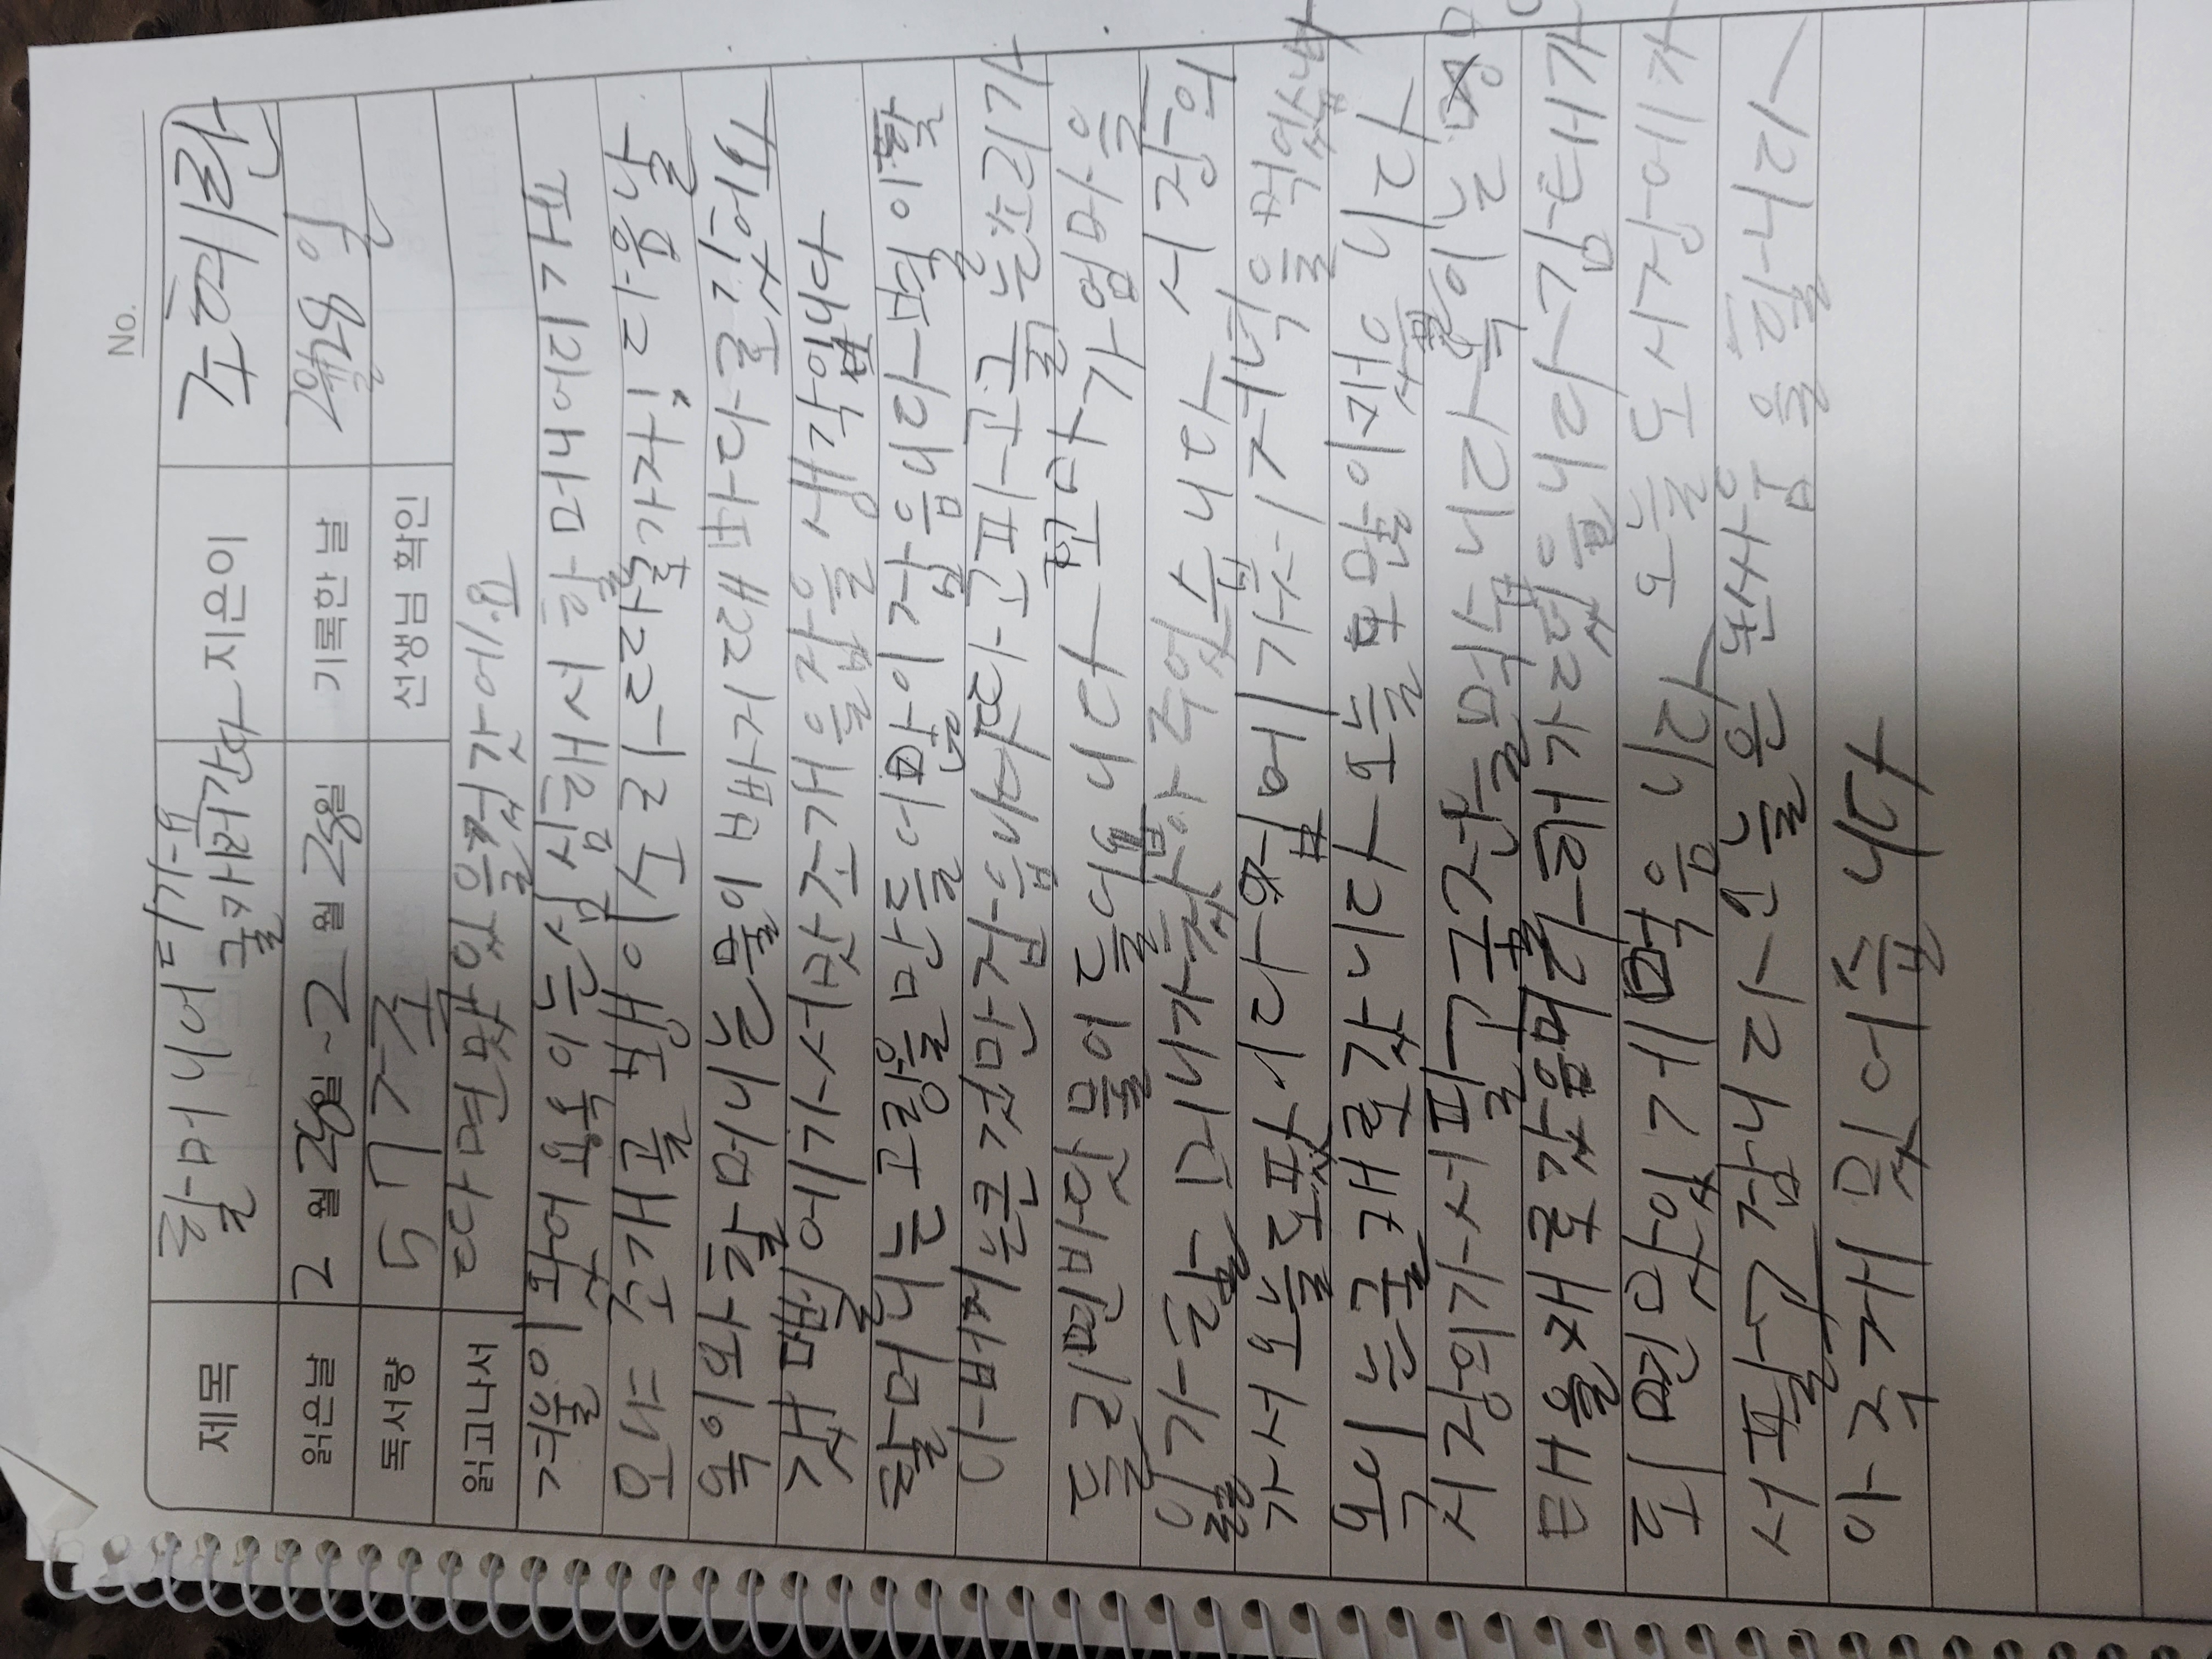 No.
제목 할머니어디가요 굴캐러간다 지은이 조혜란
읽은날 2월28일~2월28일 기록한 날 2월28일
독서량 57쪽 선생님 확인
읽고나서 따면맛있을것갓에요
겨울이왔어요옥이는심심해서할머니어디가요
오냐 조개골뱅이소라따로가자! 다음날
옥이와할머니는물이빠지때바다로갔어요
갯뻘에가서맛조개을잡을생각입니다
할머니는고랑을만들어많이잡습니다뻘이할
아버지는큰것만잡습니다따고파고굵는소리가
들리면바닷물이들어옵니다 꼬마가엄마을
일가할머니가찾아주었습니다 시장의
가서오늘도팠니다 집에가서저녁을먹었습니다
옥이는굴캐로갔니다오늘도많이캤습니다
시장의가서팔고굴전을먹습니다옥이는
태을캐로갔습니다해가떴습니다감태가
되면맛있게먹음니다 오늘도시장에가
서팔고갑니다오늘은눈싸움을합니다
아주재밌어습니다